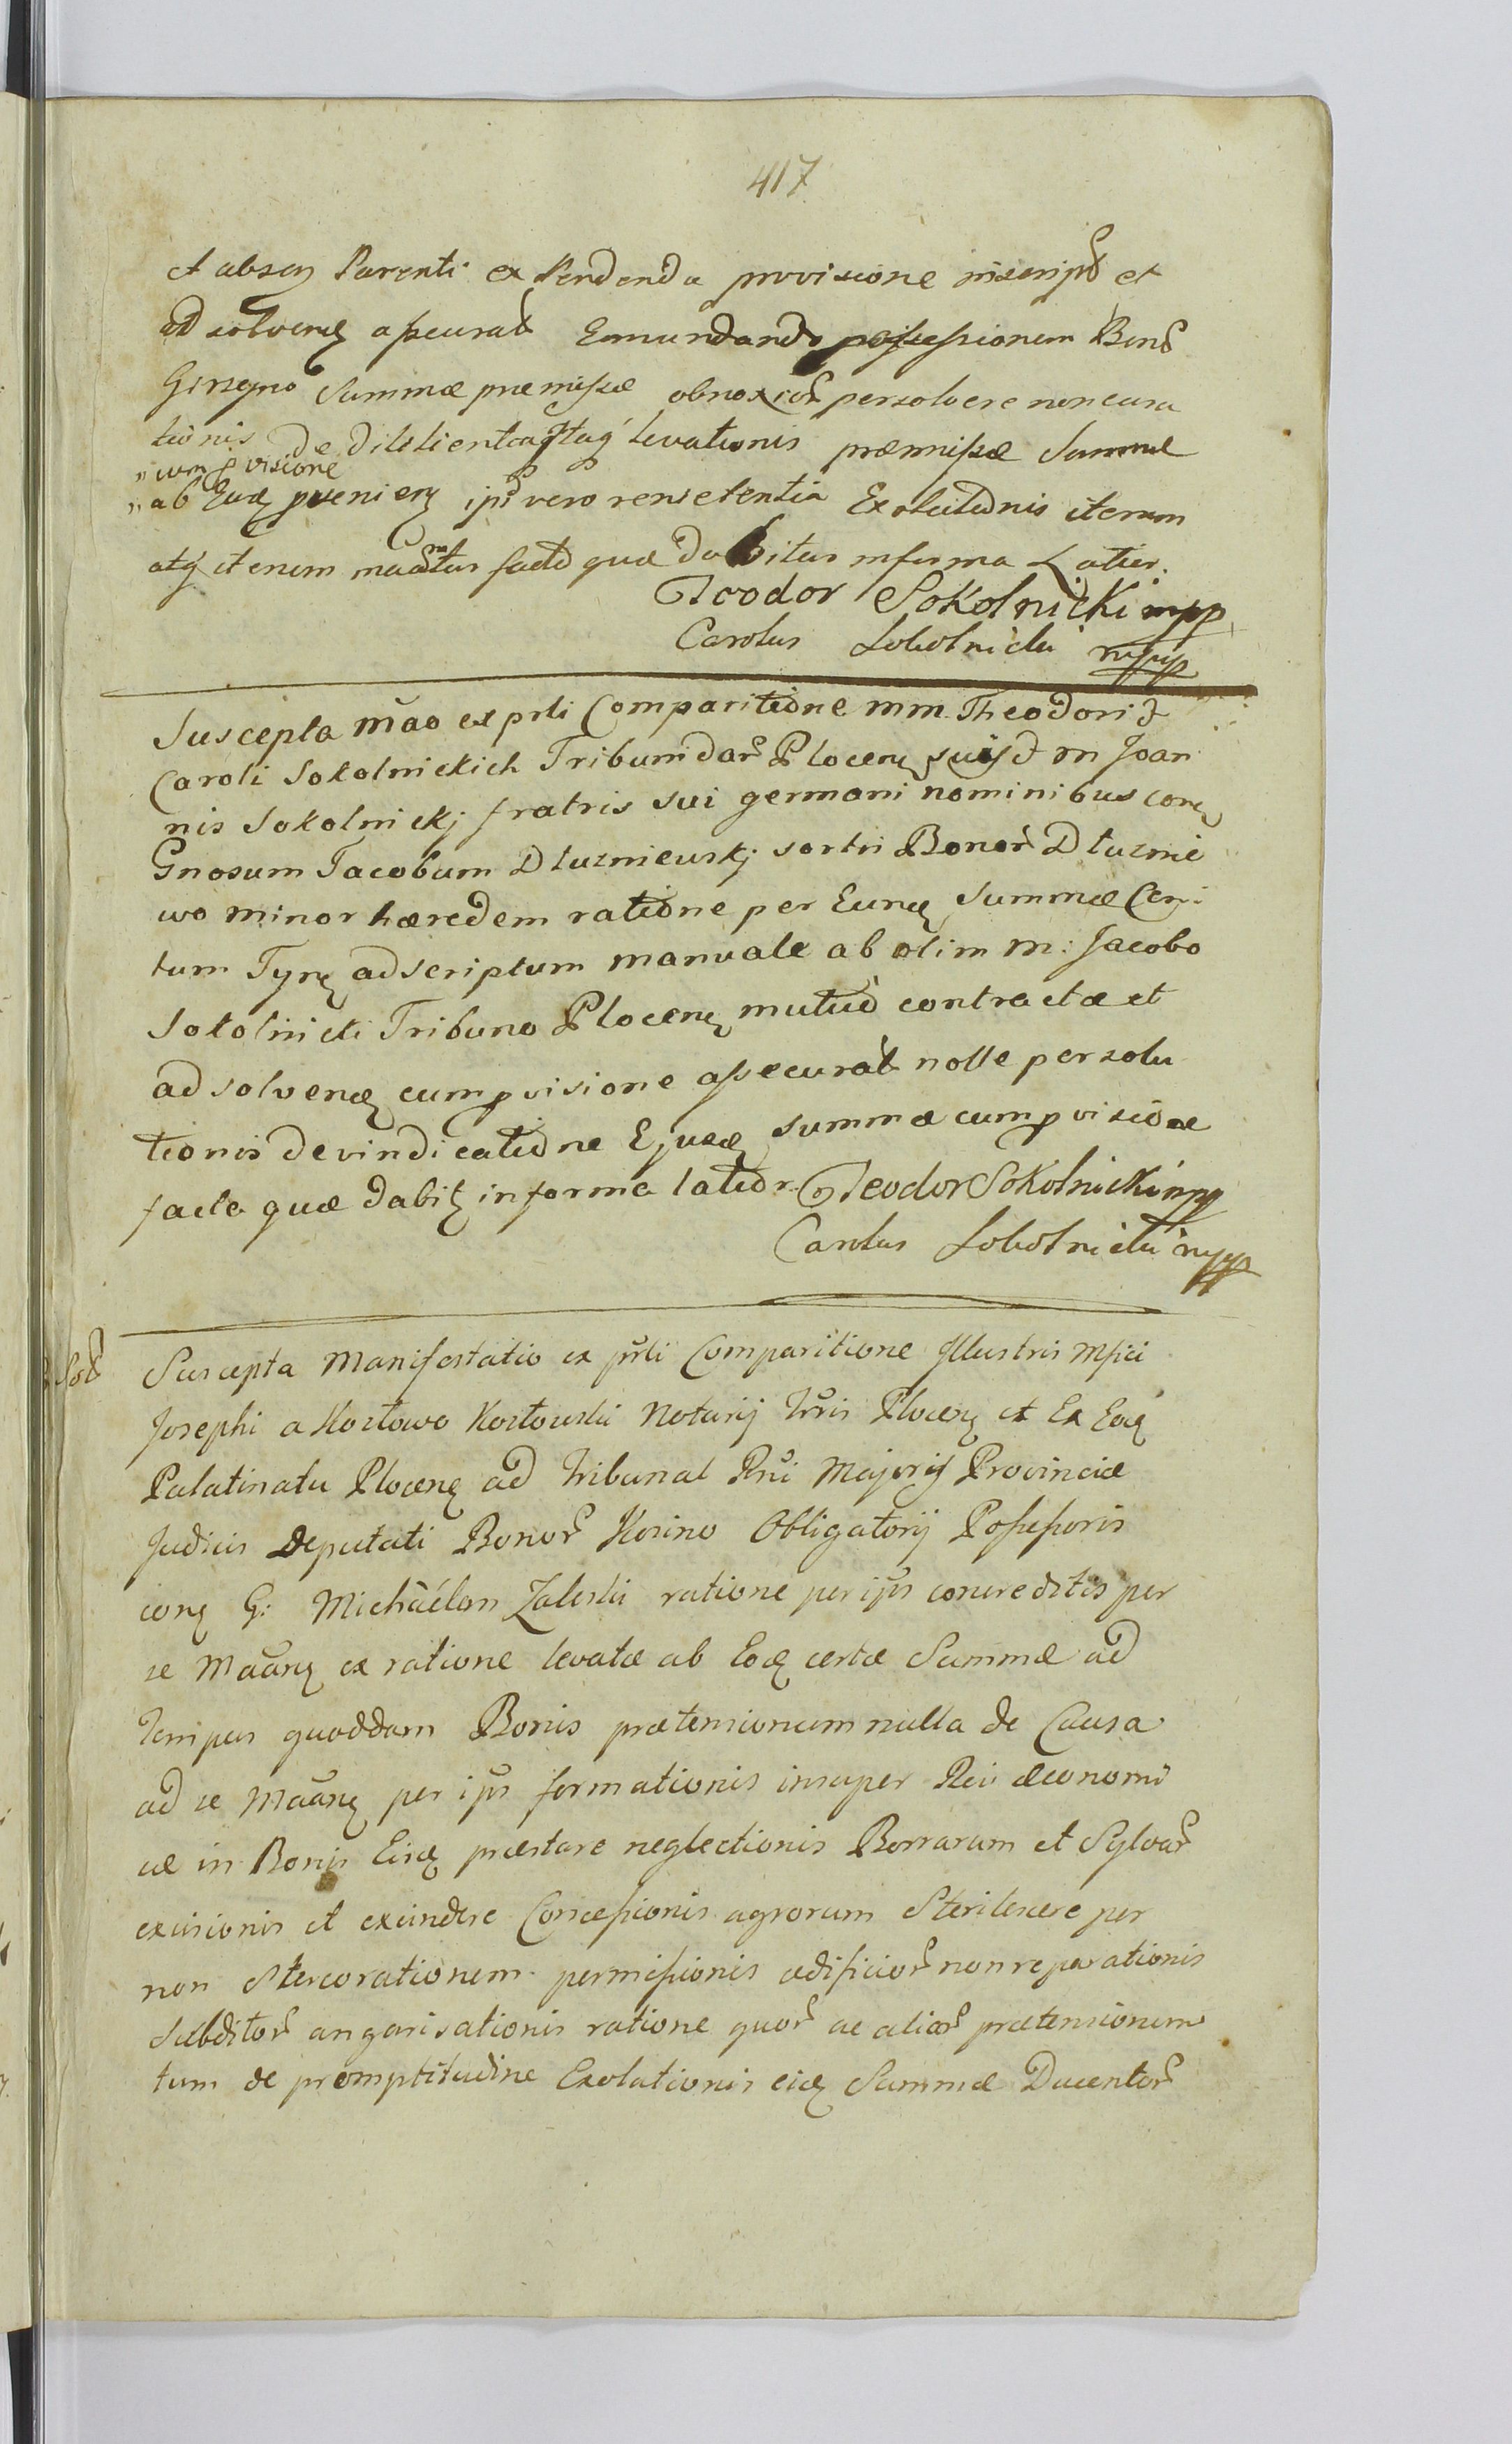 417
et absen Parenti ex Pendenda provisione inscript et
ad solvend assecurat Emundando possessionem Bonor
Girzyno Summæ præmissæ obnoxior persolvere non cura
tionis De Diligentia levationis præmissæ Summæ
"cum pvisione
"ab Eund pvenien ips vero renitentia Exolutionis iterum
atq iterum maantur facta quæ Dabitur in forma Latior.
Teodor Sokolnicki mpp
Carolus Sokolnicki mpp
Suscepta mão ex prli Comparitione mm. Theodori et
Caroli Sokolnickich Tribunidar Plocen suis et m Joan
nis Sokolnickj fratris sui germani nominibus con
Gnosum Jacobum Dluzniewskj sortis Bonor Dluznie
wo minor hæredem ratione per Eund Summæ Cen
tum Tyn ad scriptum manuale ab olim m: Jacobo
Sokolnicki Tribuno Plocen mutuo contractæ et
ad solvend cum pvisione assecurat nolle persolu
tionis de vindicatione Ejusd summæ cum pvisione
facta quæ dabit in forma latior. Teodor Sokolnicki mpp
Carolus Sokolnicki mpp
Sol
Suscepta Manifestatio ex prli Comparitione Jllustris Mfici
Josephi a Kozłowo Kozłowski Notarij Trris Plocen et Ex Eod
Palatinatu Plocen ad Tribunal Rni Majoris Provinciæ
Judicis Deputati Bonor Kosino Obligatorij Possessoris
con G: Michäélem Zaleski ratione per ips concreditis per
se Maãn ex ratione levatæ ab Eod certæ Summæ ad
Tempus quoddam Bonis prætensionum nulla de Causa
ad se Maãn per ips formationis insuper Rei œconomi
cæ in Bonis Eisd præstare neglectionis Borrarum et Sylvar
excisionis et exindere Concessionis agrorum Sterilescere per
non Stercorationem permissionis ædificior non reparationis
Subditor angarisationis ratione quor ac alior prætensionum
tum de promptitudine Exolutionis eid Summæ Ducentor